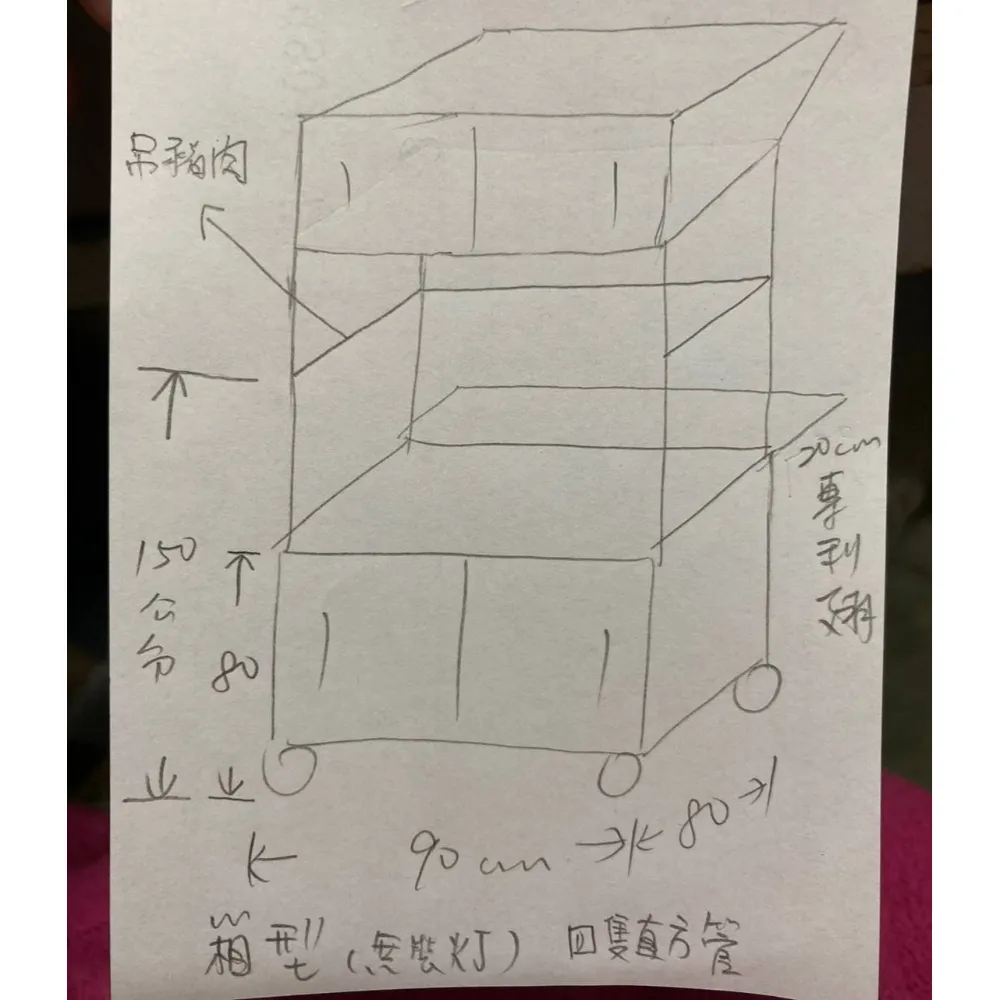 吊豬肉
150
公
分
80
專
利
翅
90cm
80
箱型(無裝灯) 四隻直方管